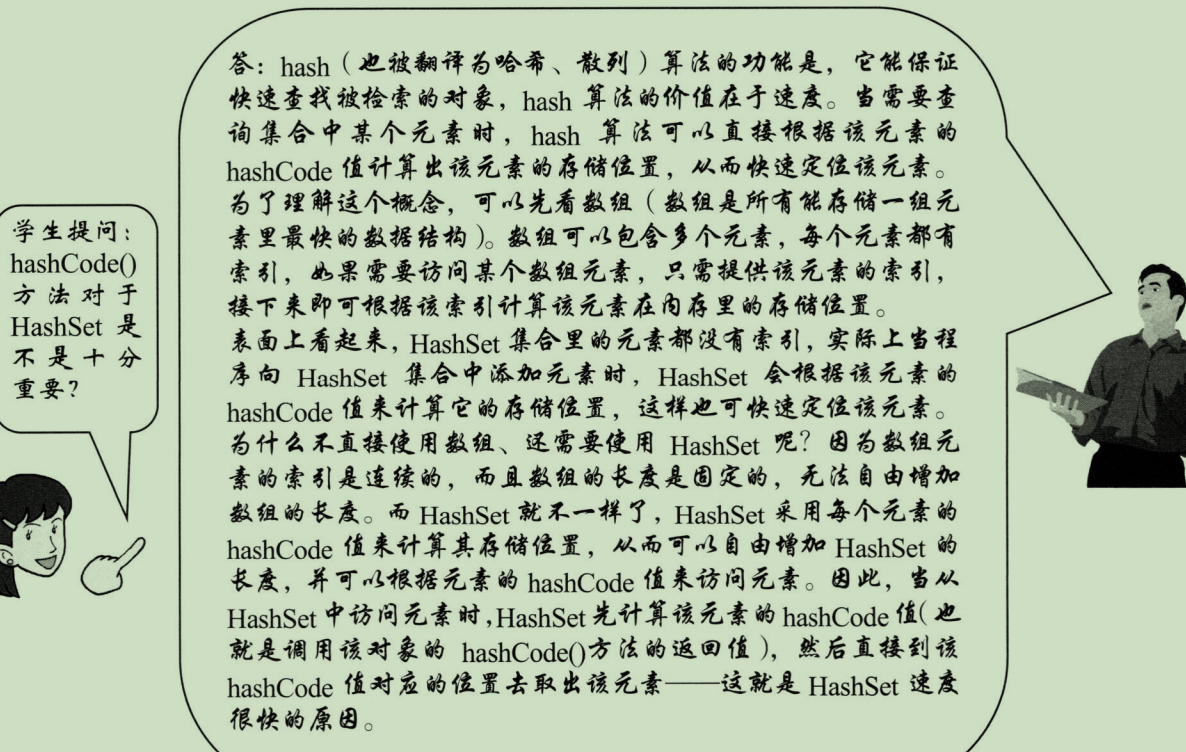 学生提问：
hashCode()
方法对于
HashSet 是
不是十分
重要？
答：hash（也被翻译为哈希、散列）算法的功能是，它能保证
快速查找被检索的对象，hash 算法的价值在于速度。当需要查
询集合中某个元素时，hash 算法可以直接根据该元素的
hashCode 值计算出该元素的存储位置，从而快速定位该元素。
为了理解这个概念，可以先看数组（数组是所有能存储一组元
素里最快的数据结构）。数组可以包含多个元素，每个元素都有
索引，如果需要访问某个数组元素，只需提供该元素的索引，
接下来即可根据该索引计算该元素在内存里的存储位置。
表面上看起来，HashSet 集合里的元素都没有索引，实际上当程
序向 HashSet 集合中添加元素时，HashSet 会根据该元素的
hashCode 值来计算它的存储位置，这样也可快速定位该元素。
为什么不直接使用数组、还需要使用 HashSet 呢？因为数组元
素的索引是连续的，而且数组的长度是固定的，无法自由增加
数组的长度。而 HashSet 就不一样了，HashSet 采用每个元素的
hashCode 值来计算其存储位置，从而可以自由增加 HashSet 的
长度，并可以根据元素的 hashCode 值来访问元素。因此，当从
HashSet 中访问元素时，HashSet 先计算该元素的 hashCode 值（也
就是调用该对象的 hashCode()方法的返回值），然后直接到该
hashCode 值对应的位置去取出该元素——这就是 HashSet 速度
很快的原因。